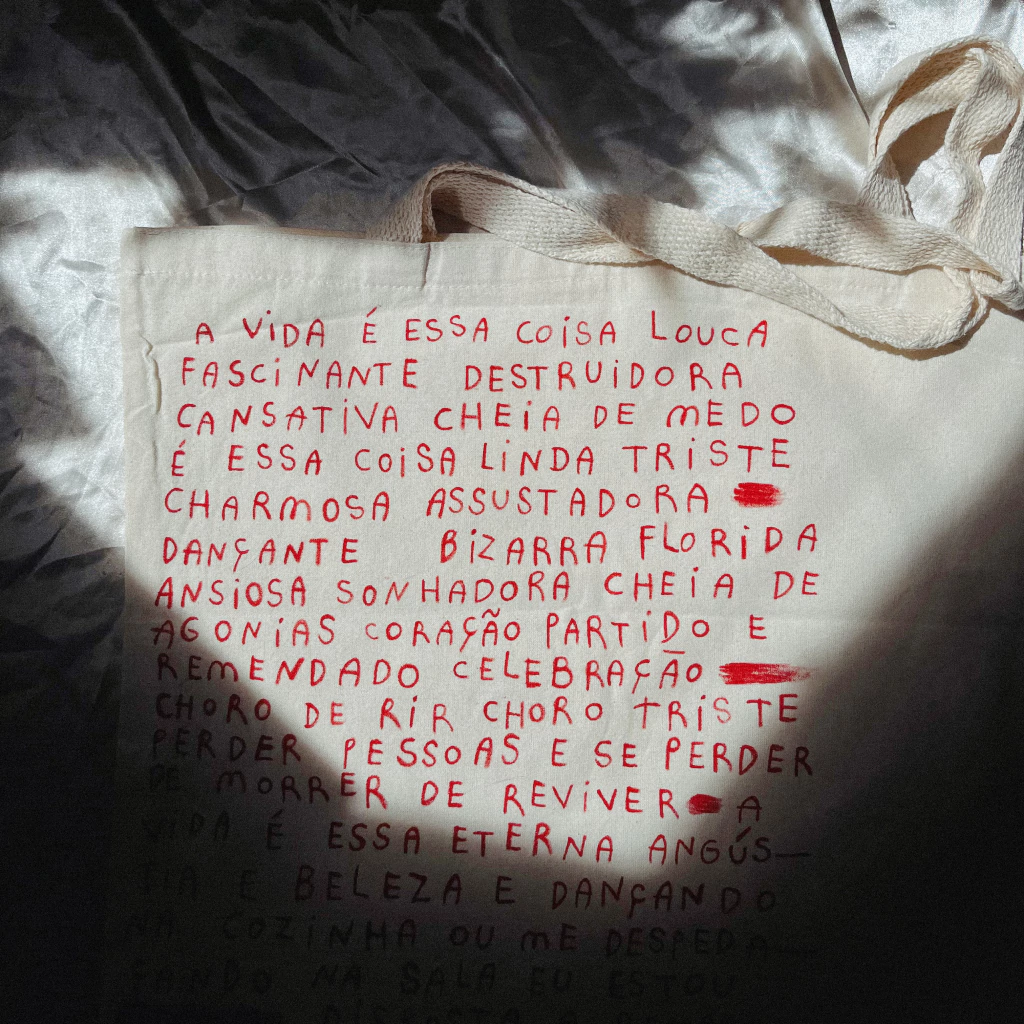 A VIDA É ESSA COISA LOUCA
FASCINANTE DESTRUIDORA
CANSATIVA CHEIA DE MEDO
É ESSA COISA LINDA TRISTE
CHARMOSA ASSUSTADORA
DANÇANTE BIZARRA FLORIDA
ANSIOSA SONHADORA CHEIA DE
AGONIAS CORAÇÃO PARTIDO E
REMENDADO CELEBRAÇÃO
CHORO DE RIR CHORO TRISTE
PERDER PESSOAS E SE PERDER
DE MORRER DE REVIVER A
VIDA É ESSA ETERNA ANGÚS—
TIA E BELEZA E DANÇANDO
NA COZINHA OU ME DESPEDA—
ÇANDO NA SALA EU ESTOU